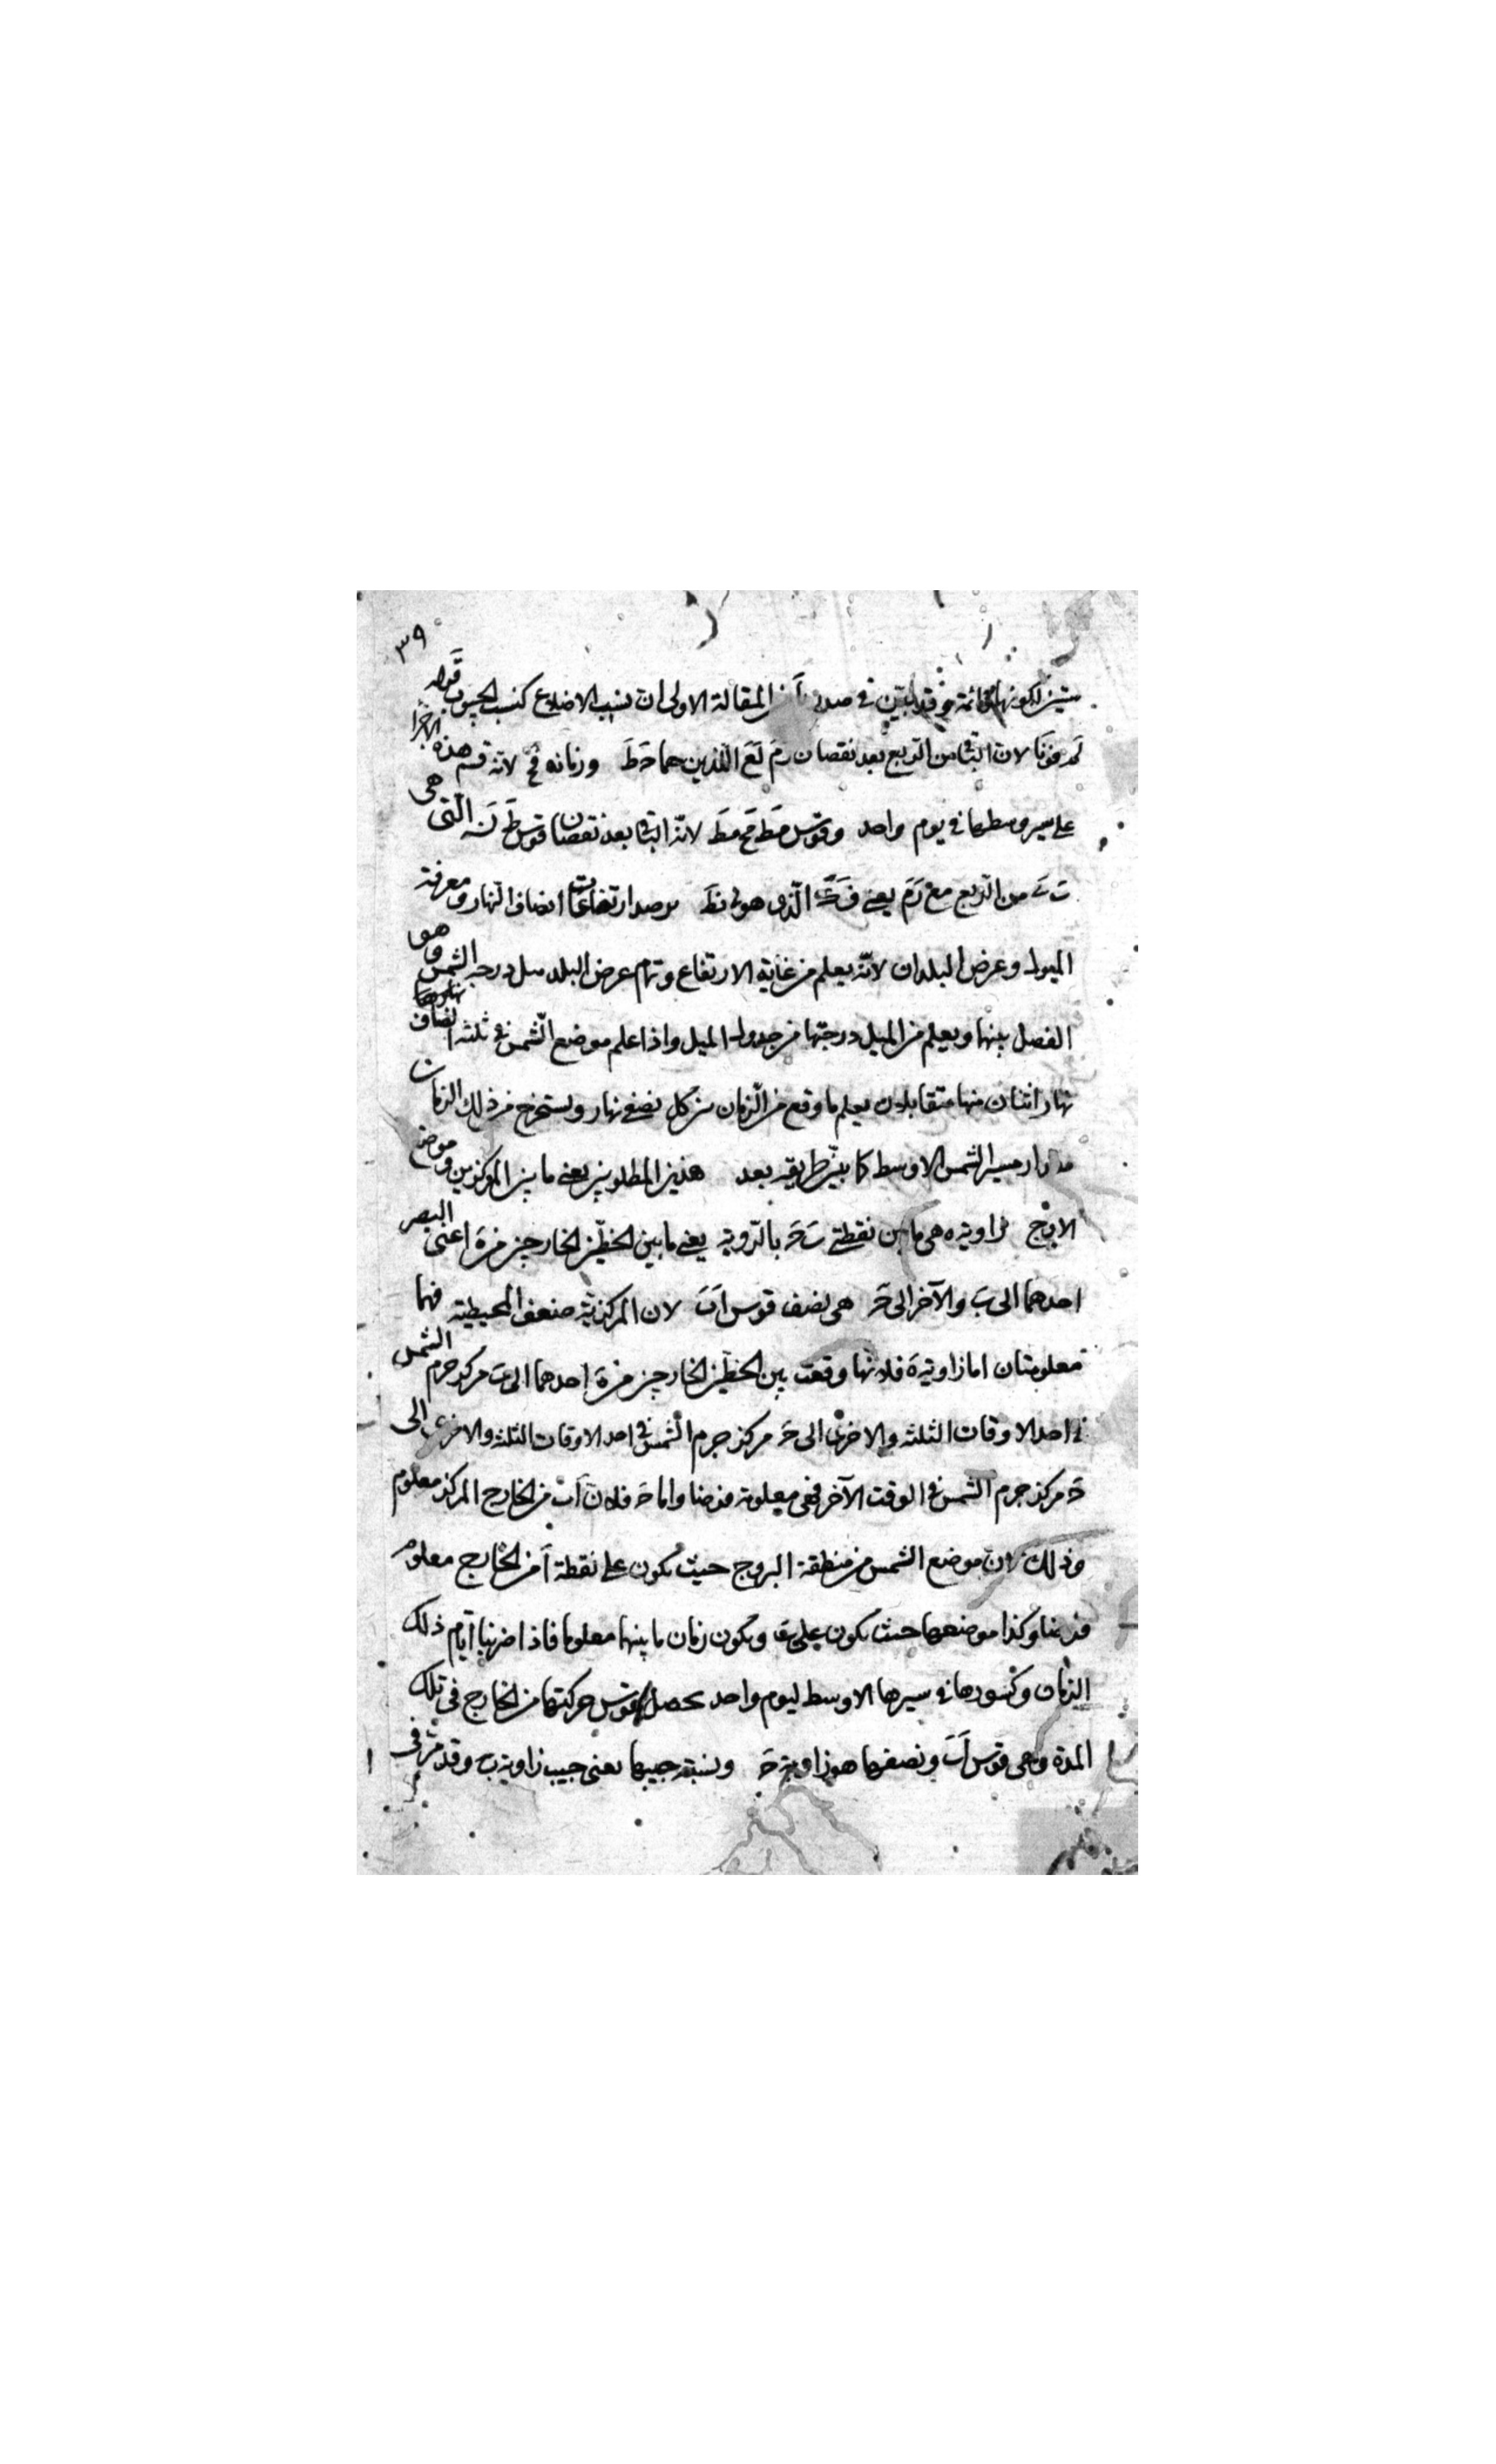 ٣٩
لكونها قائمة وقد تبين في صدر المقالة الاولى ان نسب الاضلاع كنسب الجيوب قوله
لان الباقى من الربع بعد نقصان رم لع اللذين هما حط وزمانه لانه قسم هذه الاجزا
على سير وسطها في يوم واحد وقوس مط مح مط لانه الباقى بعد نقصان قوس نه التى هى
من الربع مع رم يعنى الذى هو نط برصد ارتفاعات انصاف النهار ومعرفة
الميول وعرض البلدان لانه يعلم من غاية الارتفاع وتمام عرض البلد ميل درجة الشمس وهو
الفضل بينهما ويعلم من الميل درجتها من جدول الميل واذا علم موضع الشمس في ثلثة انصاف نهارها
نهار اثنان منها متقابلان يعلم ما وقع من الزمان بين كل نصفى نهار ويستخرج من ذلك الزمان
مقدار مسير الشمس الاوسط كما بين طريقه بعد هذين المطلوبين يعنى ما بين المركزين وموضع
الاوج زاوية ه هى ما بين نقطتى ب ح بالروية يعنى ما بين الخطين الخارجين من ه اعنى البصر
احدهما الى ب والآخر الى ح هى نصف قوس اب لان المركزية ضعف المحيطية فهما
معلومتان اما زاوية ه فلانها وقعت بين الخطين الخارجين من ه احدهما الى ب مركز جرم الشمس
في احد الاوقات الثلثه والاخرى الى ح مركز جرم الشمس في احد الاوقات الثلثه والاخرى الى
ح مركز جرم الشمس في الوقت الآخر فهى معلومة فرضا واما ح فلان اب من الخارج المركز معلوم
وذلك لان موضع الشمس من منطقة البروج حيث تكون على نقطة ا من الخارج معلوم
فرضا وكذا موضعها حيث تكون على ب ويكون زمان ما بينهما معلوما فاذا ضربنا ايام ذلك
الزمان وكسورها في سيرها الاوسط ليوم واحد يحصل قوس حركتها من الخارج في تلك
المدة وهى قوس اب ونصفها هو زاوية ح ونسبة جيبها يعنى جيب زاوية ب وقد مر في